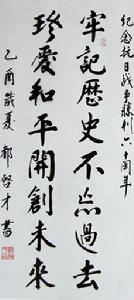 纪念抗日战争胜利六十周年
牢記歷史不忘過去
珍愛和平開創未來
乙酉歲夏 郝啓才書